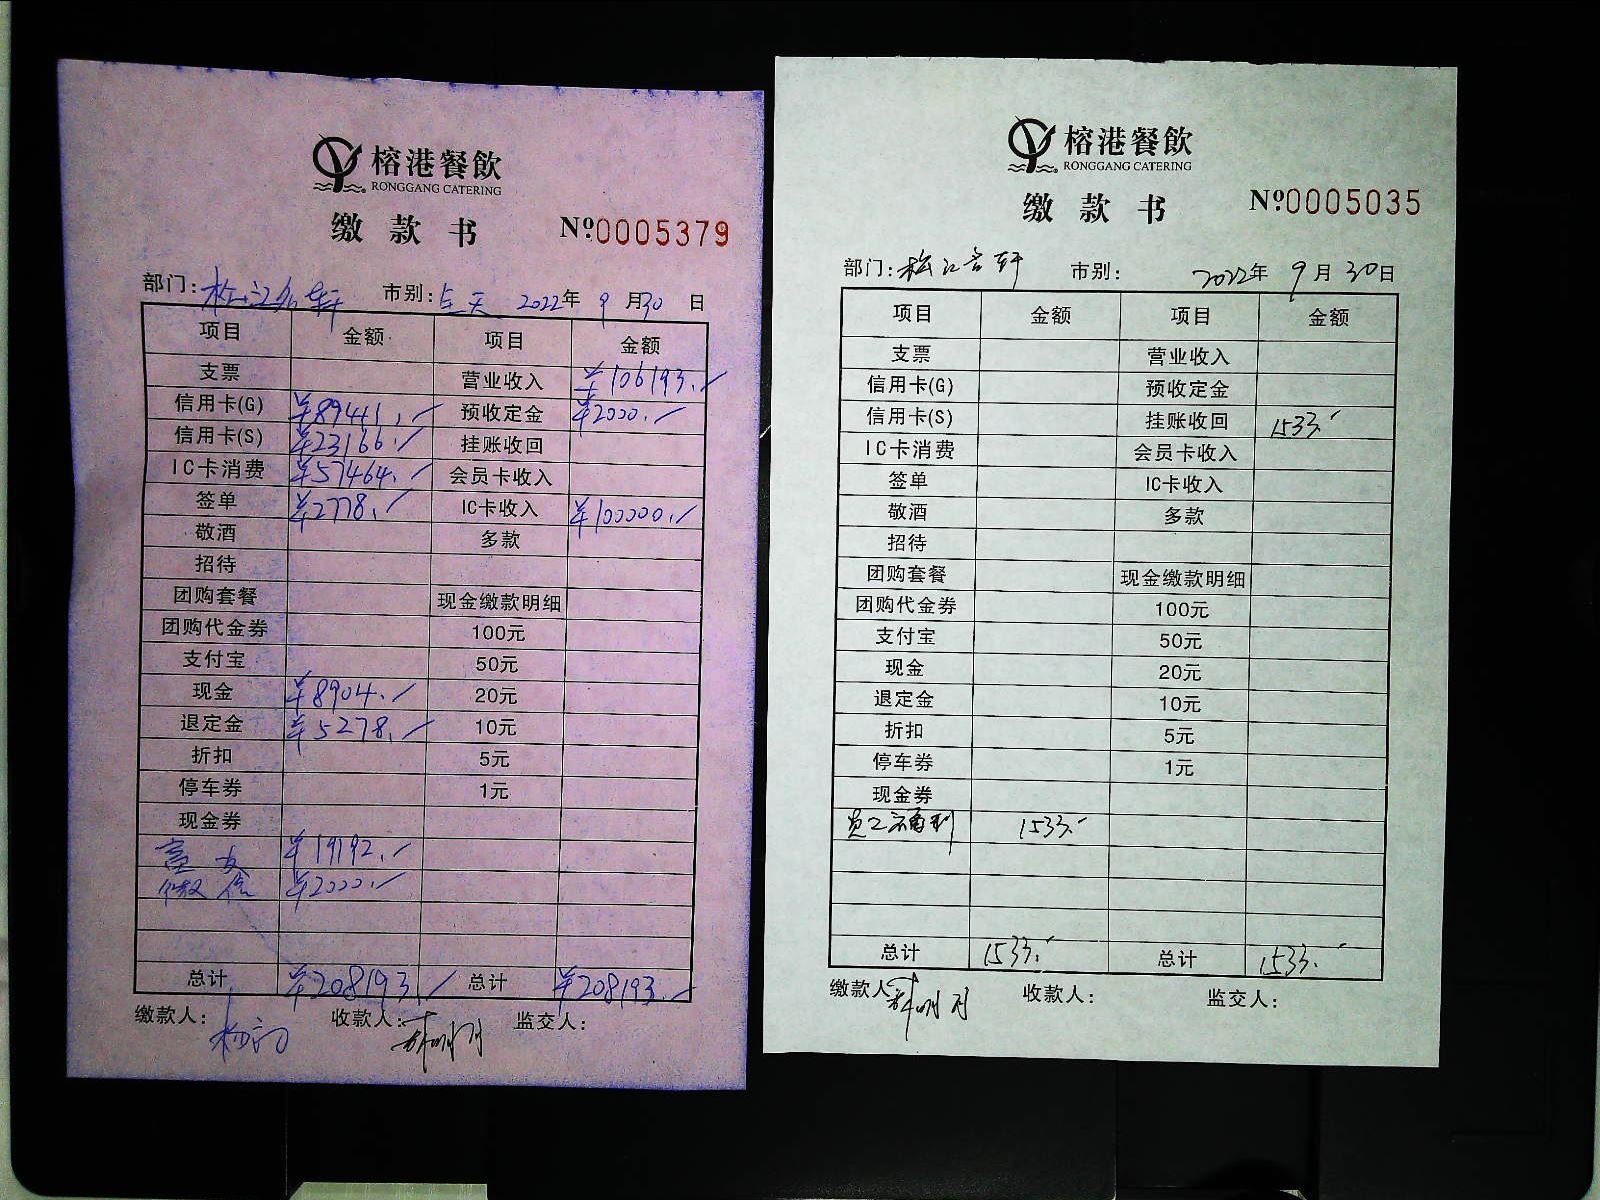 榕港餐飲
RONGGANG CATERING
缴款书 №0005379
部门: 松江名轩 市别: 全天 2022年 9月30日
项目 金额 项目 金额
支票 营业收入 ¥106193.
信用卡(G) ¥89441. 预收定金 ¥2000.
信用卡(S) ¥23166. 挂账收回
IC卡消费 ¥57464. 会员卡收入
签单 ¥2778. IC卡收入 ¥100000.
敬酒 多款
招待
团购套餐 现金缴款明细
团购代金券 100元
支付宝 50元
现金 ¥8904. 20元
退定金 ¥5278. 10元
折扣 5元
停车券 1元
现金券
¥19192.
微信 ¥2000.
总计 ¥208193. 总计 ¥208193.
缴款人: 收款人: 监交人:
榕港餐飲
RONGGANG CATERING
缴款书 №0005035
部门: 松江名轩 市别: 2022年 9月30日
项目 金额 项目 金额
支票 营业收入
信用卡(G) 预收定金
信用卡(S) 挂账收回 1533.
IC卡消费 会员卡收入
签单 IC卡收入
敬酒 多款
招待
团购套餐 现金缴款明细
团购代金券 100元
支付宝 50元
现金 20元
退定金 10元
折扣 5元
停车券 1元
现金券
员工福利 1533.
总计 1533. 总计 1533.
缴款人 收款人: 监交人: